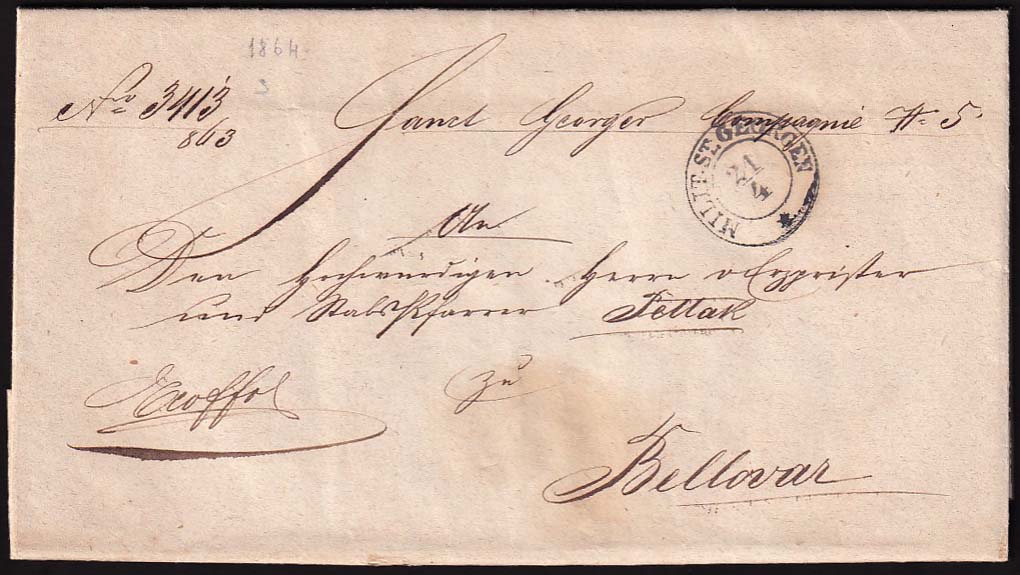 1864.
No 3413
863
Sanct Georger Compagnie No 5.
MILIT. ST. GEORGEN
21
4
An
Den Hochwürdigen Herrn v Erzprister
und Stabspfarrer Pettak
Exoffo
zu
Bellovar